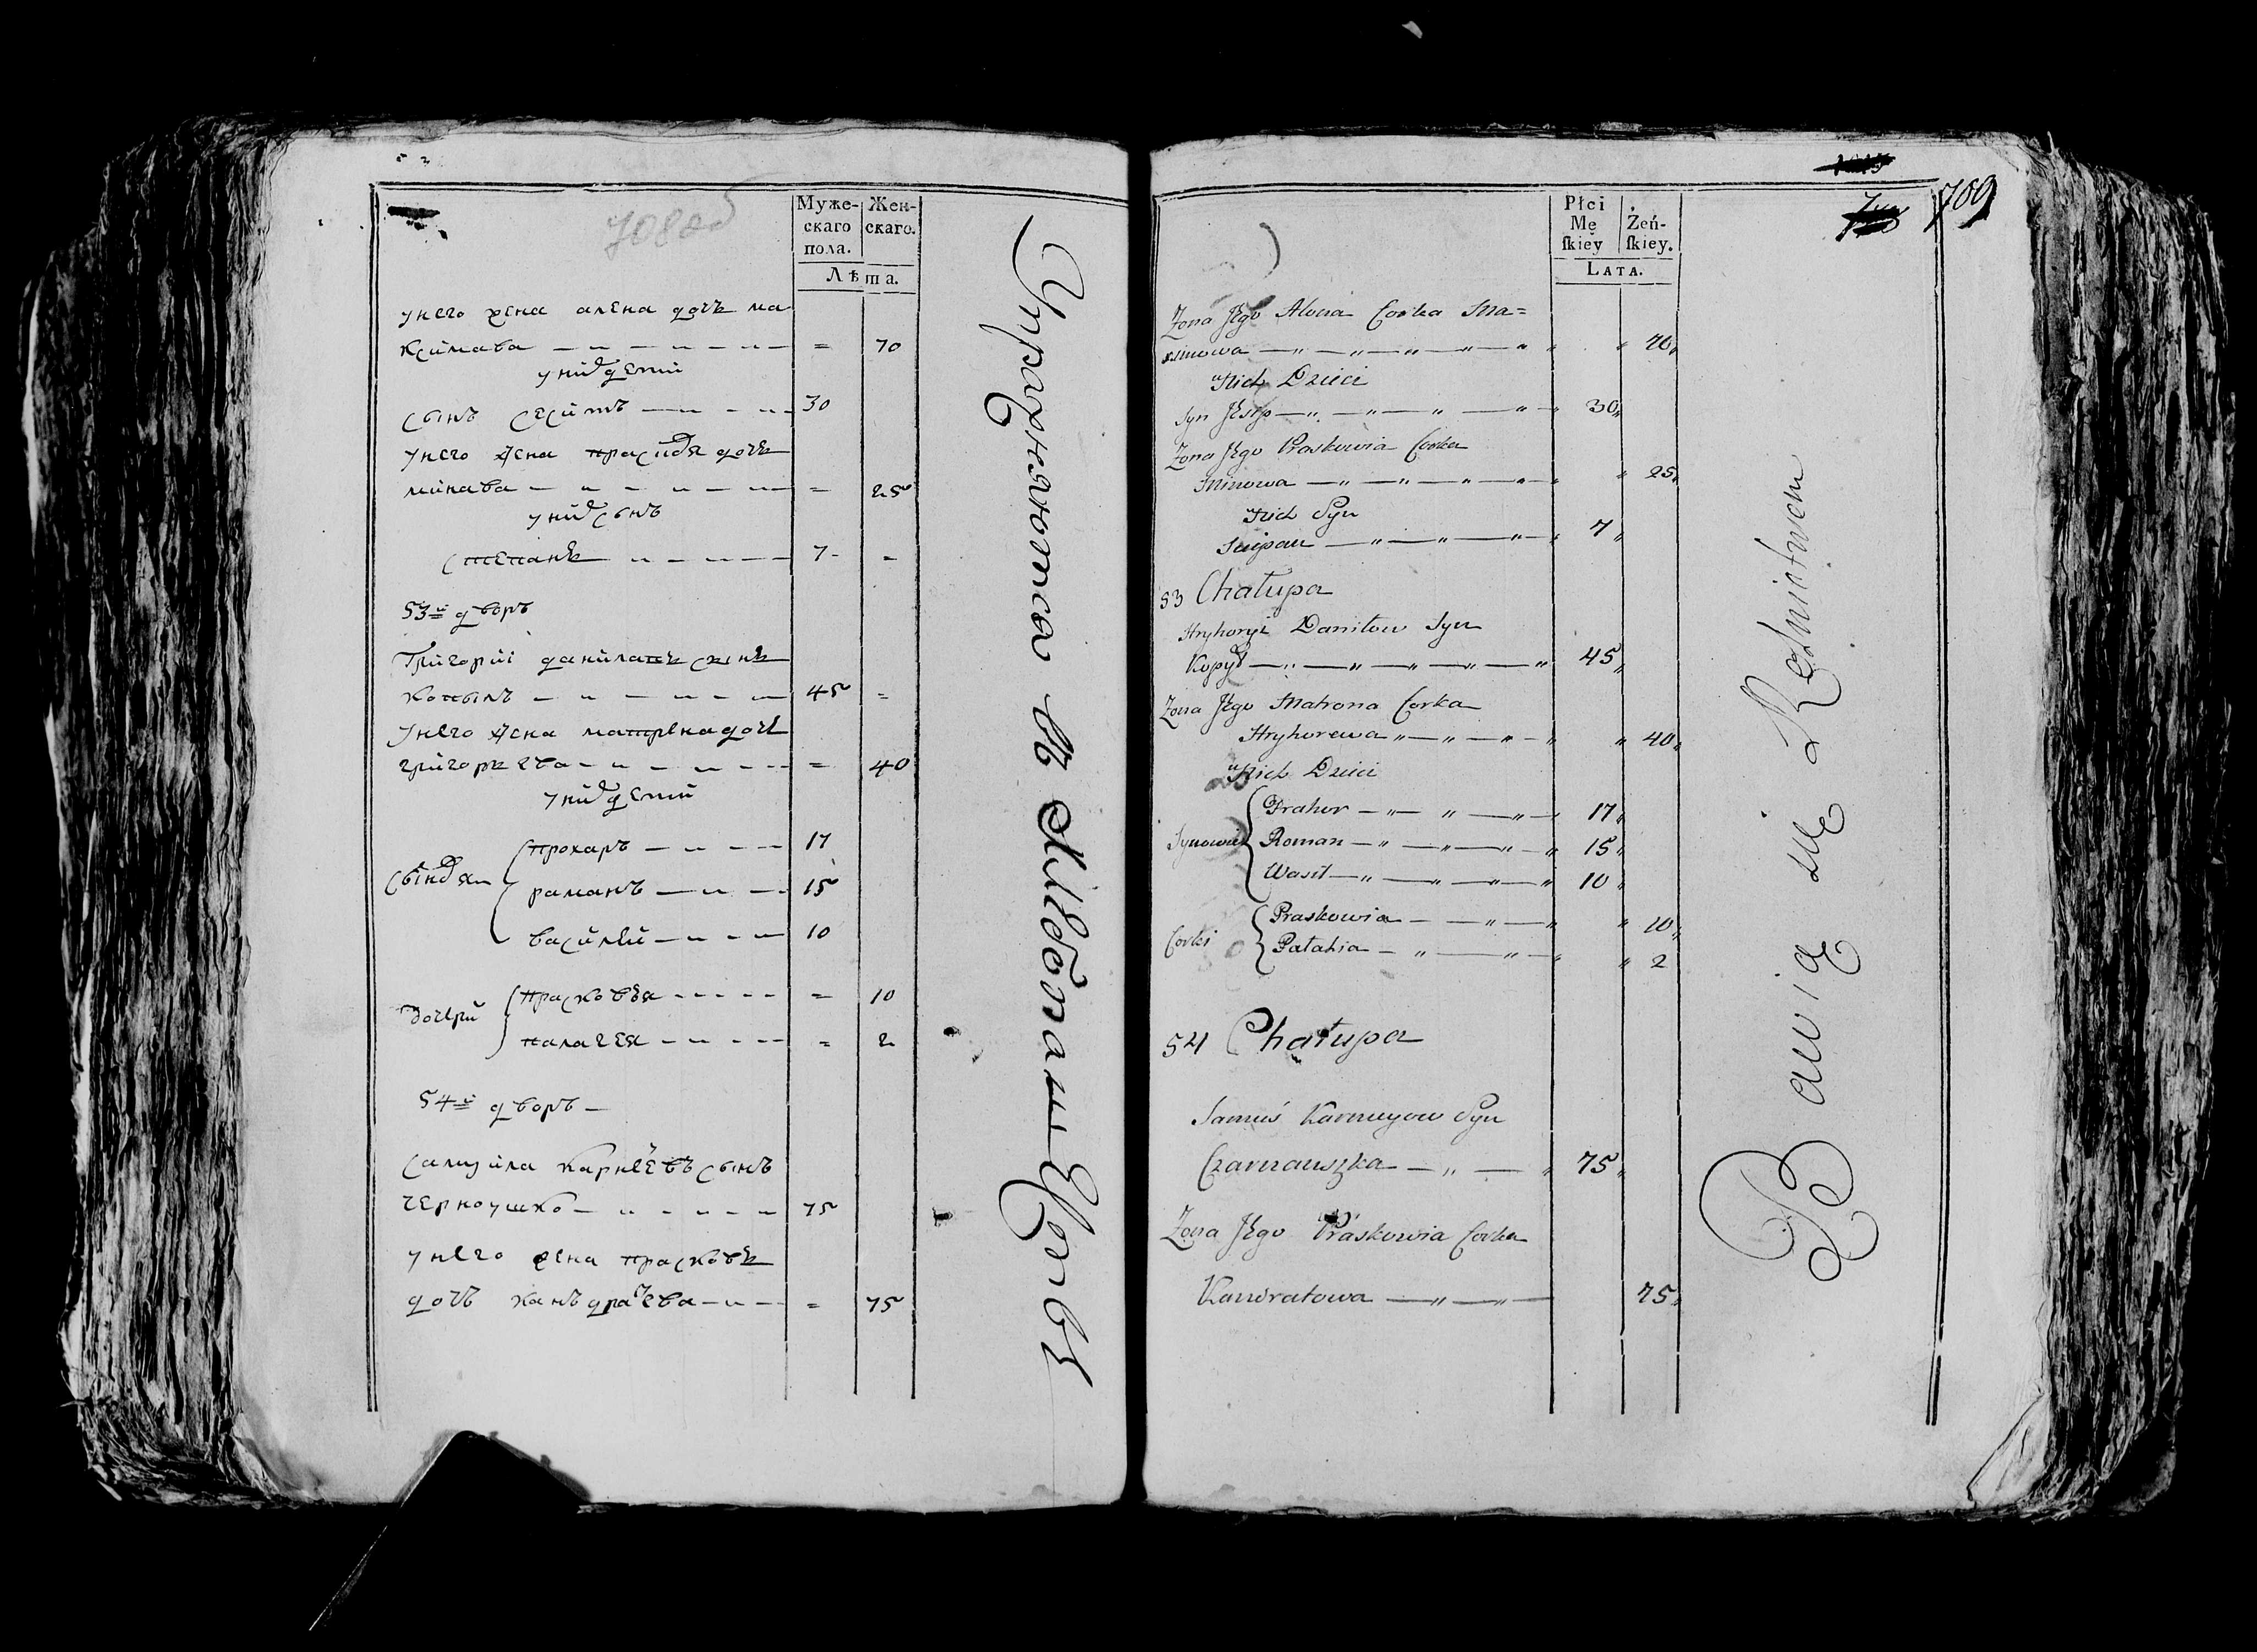 708 об
Муже-
скаго
пола.
Жен-
скаго.
Лѣта.
у него жена алена дочь ма
ксимава — — — = 70
у них дети
сынъ есипъ — — — 30
у него жена прасковя дочь
минава — — — = 25
у них сынъ
степанъ — — — 7 -
53й дворъ
Григориі данилавъ сынъ
копылъ — — — 45 =
У него жена матрена дочь
григорьева — — — = 40
у них дети
сыновя
прохаръ — — — 17
раманъ — — — 15
василей — — — 10
дочери
прасковея - - - = 10
палагея - - - = 2
54й дворъ —
самуила карнеевъ сынъ
черноушко — — — 75
у него жена прасковъя
дочъ канъдратева — — = 75
Упражняются въ хлебопашестве
709
Płci
Mę
ſkiey
Żeń-
ſkiey.
LATA.
Zona Jego Alona Corka Ma=
xsimowa — „ — „ — „ 70„
u Nich Dzieci
Syn Jesip — „ — „ — „ 30„
Zona Jego Praskowia Corka
Minowa — „ — „ — „ 25„
u Nich Syn
Sciepan — „ — „ — „ 7„
53 Chałupa
Hryhoryi Daniłow Syn
Kopył — „ — „ — „ 45„
Zona Jego Matrona Corka
Hryhorewa „ — „ — „ 40„
u Nich Dzieci
Synowie
Prahor — „ — „ — „ 17„
Roman — „ — „ — „ 15„
Wasil — „ — „ — „ 10„
Corki
Praskowia — — „ — „ 10„
Pałahia — „ — „ — „ 2
54 Chałupa
Samuś Karnieyow Syn
Czarnauszka — „ — „ 75„
Zona Jego Praskowia Corka
Kandratowa — „ — „ — 75„
Bawią się Rolnictwem